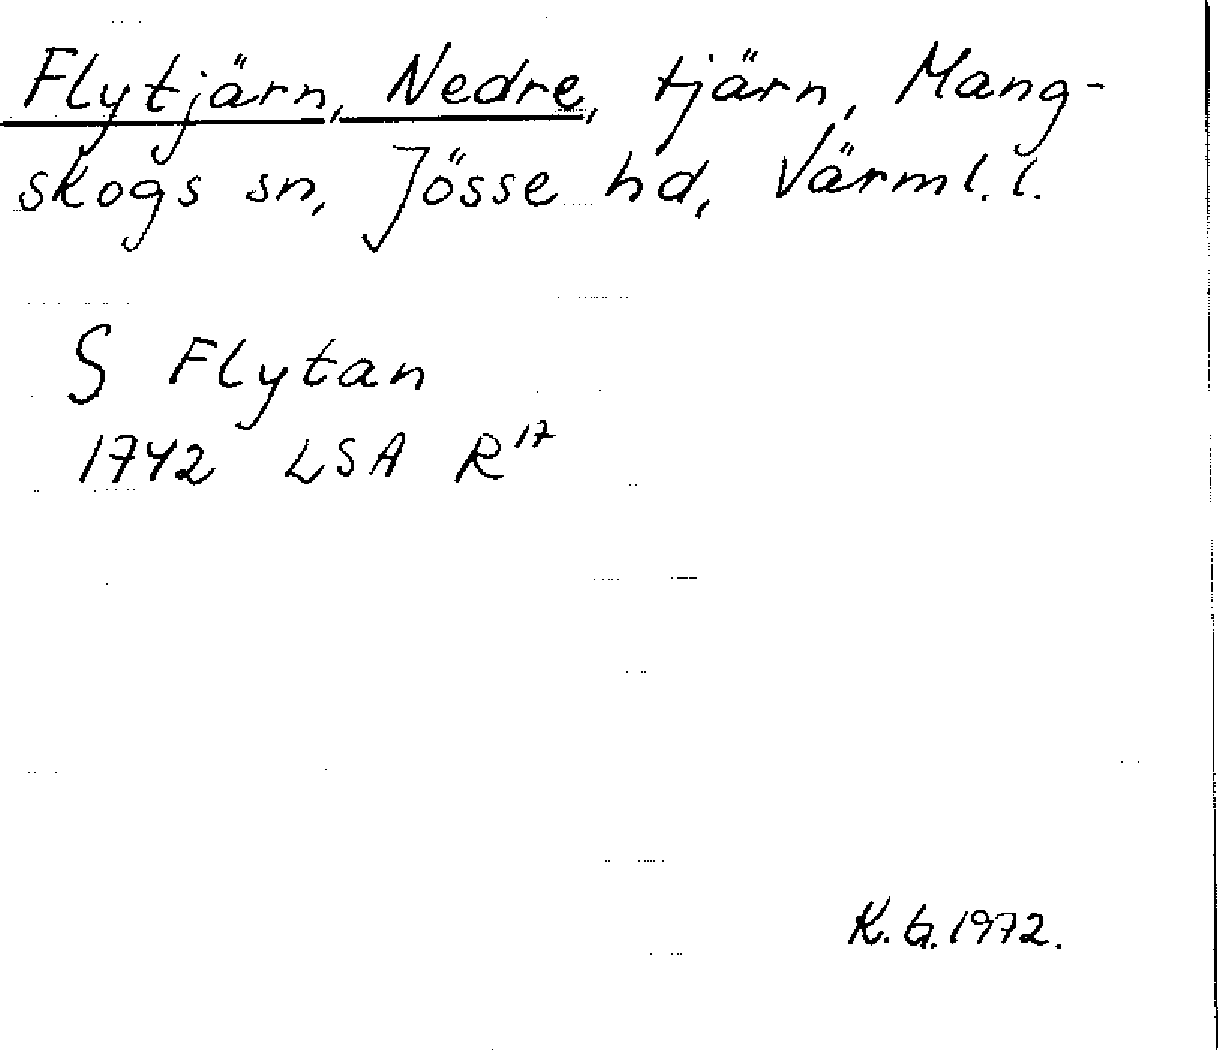 Flytjärn, Nedre, tjärn, Mang-
skogs sn, Jösse hd, Värml. l.
S Flytan
1742 LSA R 17
K. G. 1972.